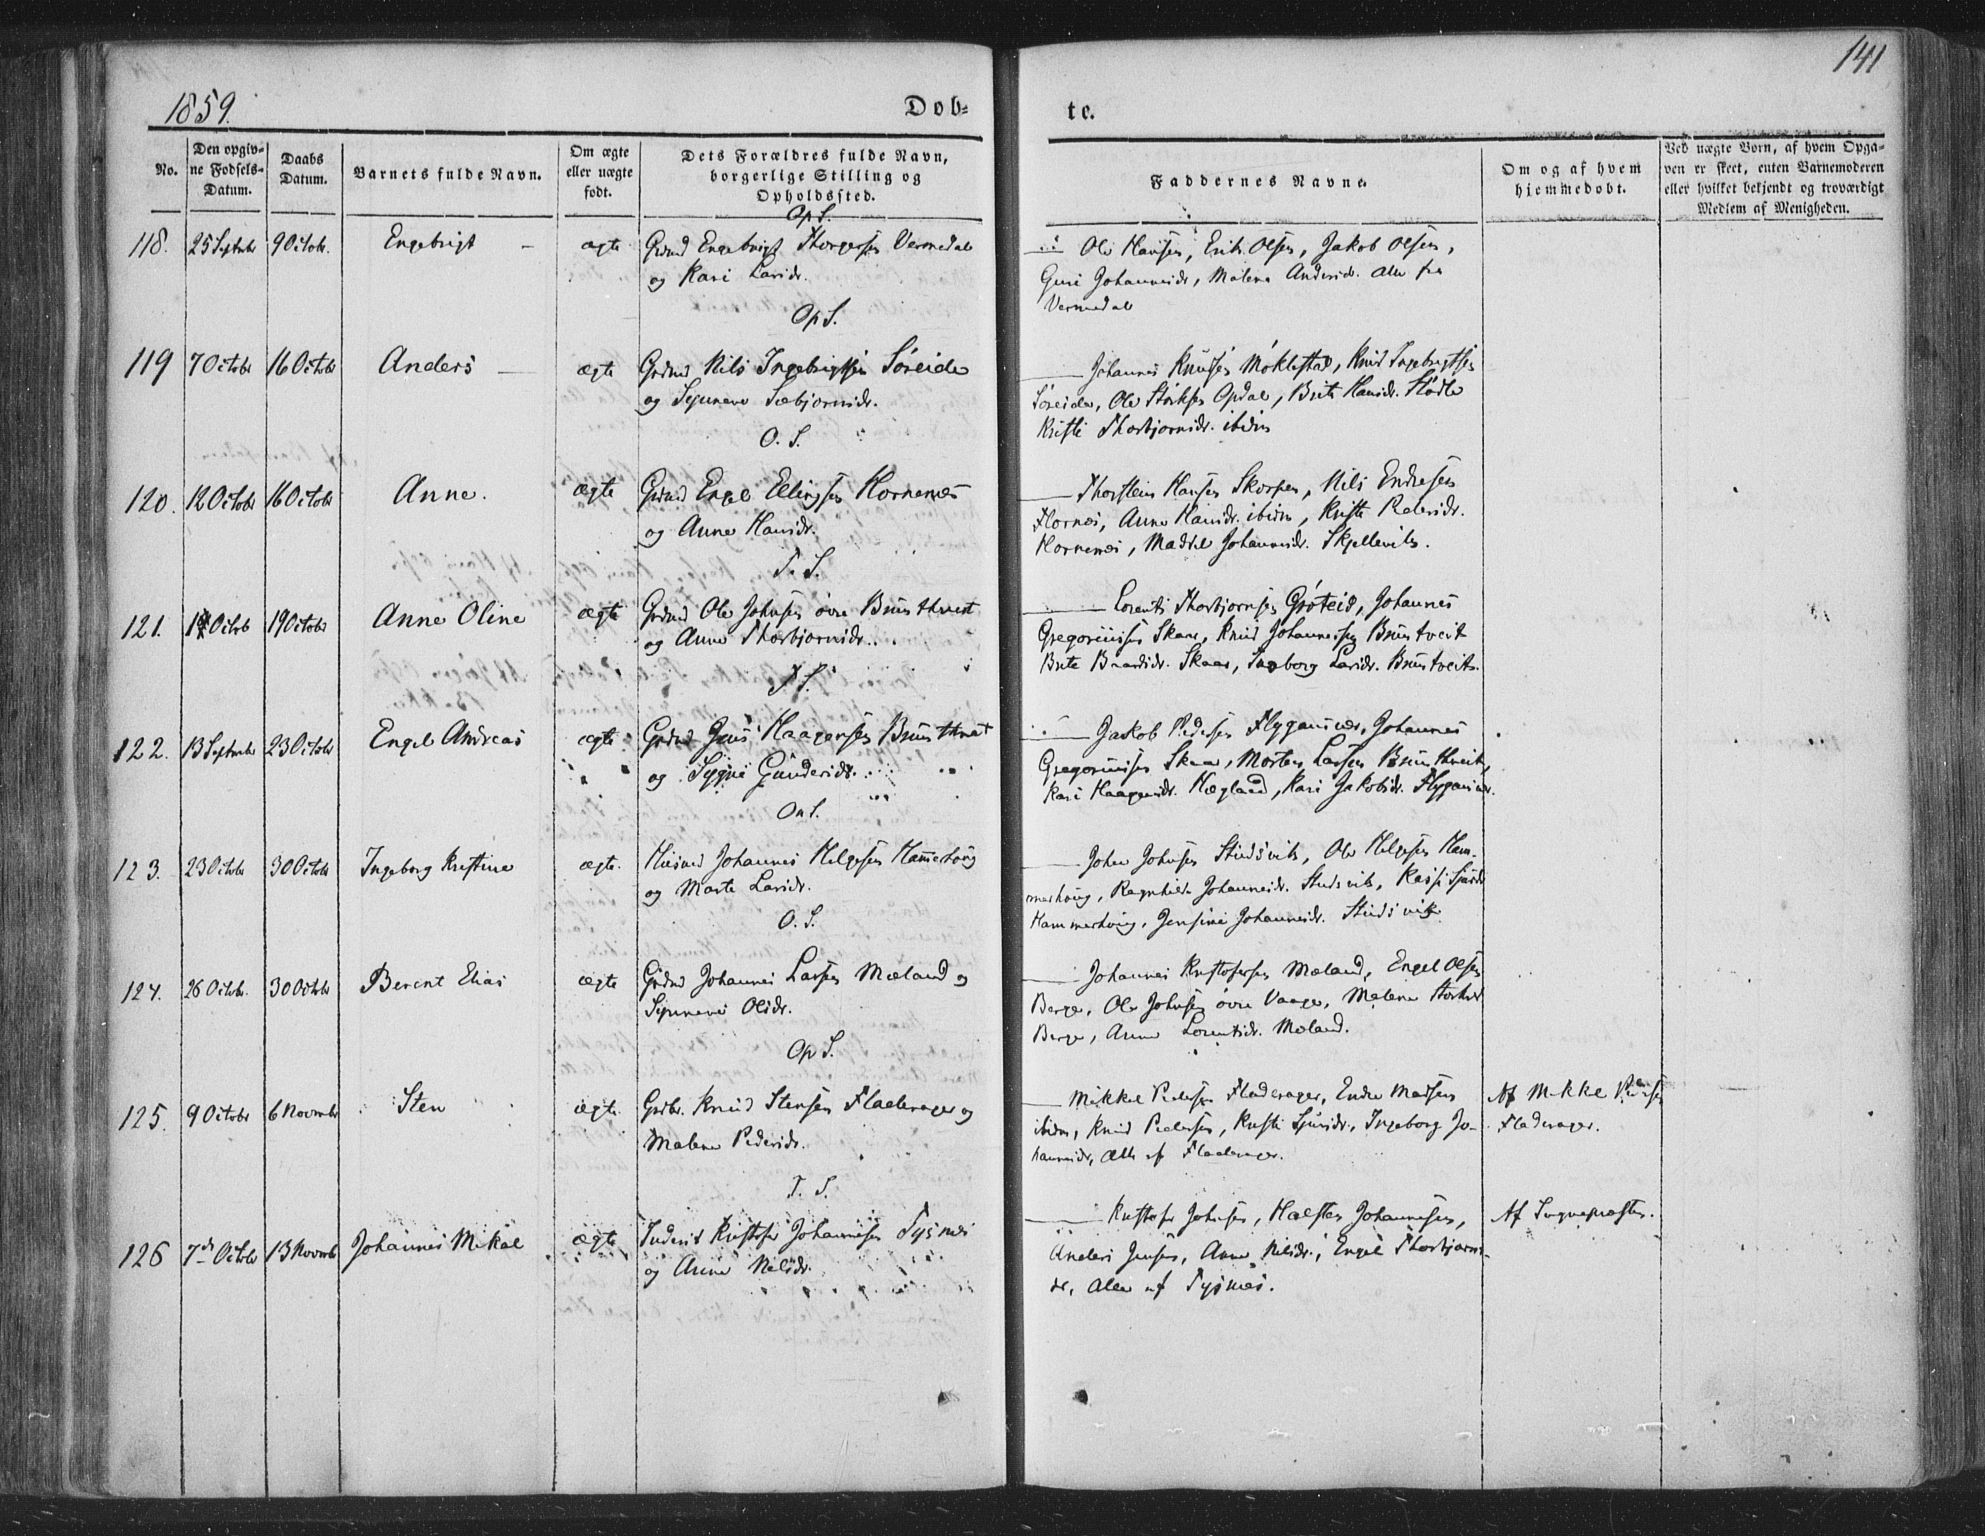 141
1859.
Døb-
te.
No.
Den opgiv-
ne Fødsels-
Datum.
Daabs
Datum.
Barnets fulde Navn.
Om ægte
eller uægte
født.
Dets Forældres fulde Navn,
borgerlige Stilling og
Opholdssted.
Faddernes Navne.
Om og af hvem
hjemmedøbt.
Ved uægte Børn, af hvem Opga-
ven er skeet, enten Barnemoderen
eller hvilket bekjendt og troværdigt
Medlem af Menigheden.
Op S.
118. 25 Septmbr 9 Octobr. Engebrigt ægte Grdmd Engebrigt Thorgersen Vermedal
og Kari Larsdr.
Ole Hansen, Erik Olsen, Jakob Olsen,
Guri Johannesdr, Malena Andersdr. alle fra
Vermedal
Op S.
119 7 Octobr 16 Octobr Anders ægte Grdmd Nils Ingebrigtsen Søreide
og Synneve Sæbjørnsdr.
Johannes Knudsen Møklestad, Knud Ingebrigtsen
Søreide, Ole Størksen Opdal, Brite Hansdr. Hødle
Kristi Thorbjørnsdr. ibidm
O. S.
120. 12 Octobr 16 Octobr Anne. ægte Grdmd Engel Ellingsen Hornenes
og Anne Hansdr.
Thorstein Hansen Skorpen, Nils Endresen
Hornes, Anne Hansdr. ibidm, Kristi Pedersdr.
Hornenes, Madtel Johannesdr. Skjellevik.
T. S.
121. Octob 19 Octobr Anne Oline ægte Grdmd Ole Johnsen øvre Bruntveit
og Anne Thorbjørnsdr.
Lorents Thorbjørnsen Grøteid, Johannes
Gregoriusen Skaar, Knud Johannesen Bruntveit
Brite Baardsdr. Skaar, Ingeborg Larsdr. Bruntveit.
T S.
122. 13 Septmbr 23 Octobr Engel Andreas ægte Grdmd Jens Haagensen Bruntveit
og Sygni Gundersdr.
Jakob Pedersen Flygansvær, Johannes
Gregoriusen Skaar, Morten Larsen Bruntveit,
Kari Haagensdr. Hægland, Kari Jakobsdr. Flygansvær.
On S.
123. 23 Octobr 30 Octobr Ingeborg Kristine ægte. Huusmd Johannes Helgesen Hammerhoug
og Marte Larsdr.
John Johnsen Studsvik, Ole Helgesen Ham-
merhoug, Ragnhilde Johannesdr. Studsvik,
Hammerhoug, Jensine Johannesdr. Studsvik
O. S.
124. 26 Octob. 30 Octobr Berent Elias ægte Grdmd Johannes Larsen Mæland og
Synneve Olsdr.
Johannes Kristofersen Mæland, Engel Olsen
Berge, Ole Johnsen øvre Vaage, Malene
Berge, Anne Lorentsdr. Mæland.
Op S.
125. 9 Octobr 6 Novembr Sten ægte Grdbr. Knud Stensen Fladerager og
Malene Pedersdr.
Mikkel Pedersen Fladerager, Endre Madsen
ibidm, Knud Pedersen, Kristi Sjursdr., Ingeborg Jo-
hannesdr, Alle af Fladerager.
Af Mikkel Pedersen
Fladerager.
T. S.
126 7de Octobr 13 Novembr Johannes Mikal ægte Kristofer Johannesen Tysnes
og Anne Nelsdr.
Kristofer Johnsen, Halsten Johannesen,
Anders Jensen, Anne Nilsdr., Engel Thorbjørns-
dr, Alle af Tysnes.
Af Sognepræsten.